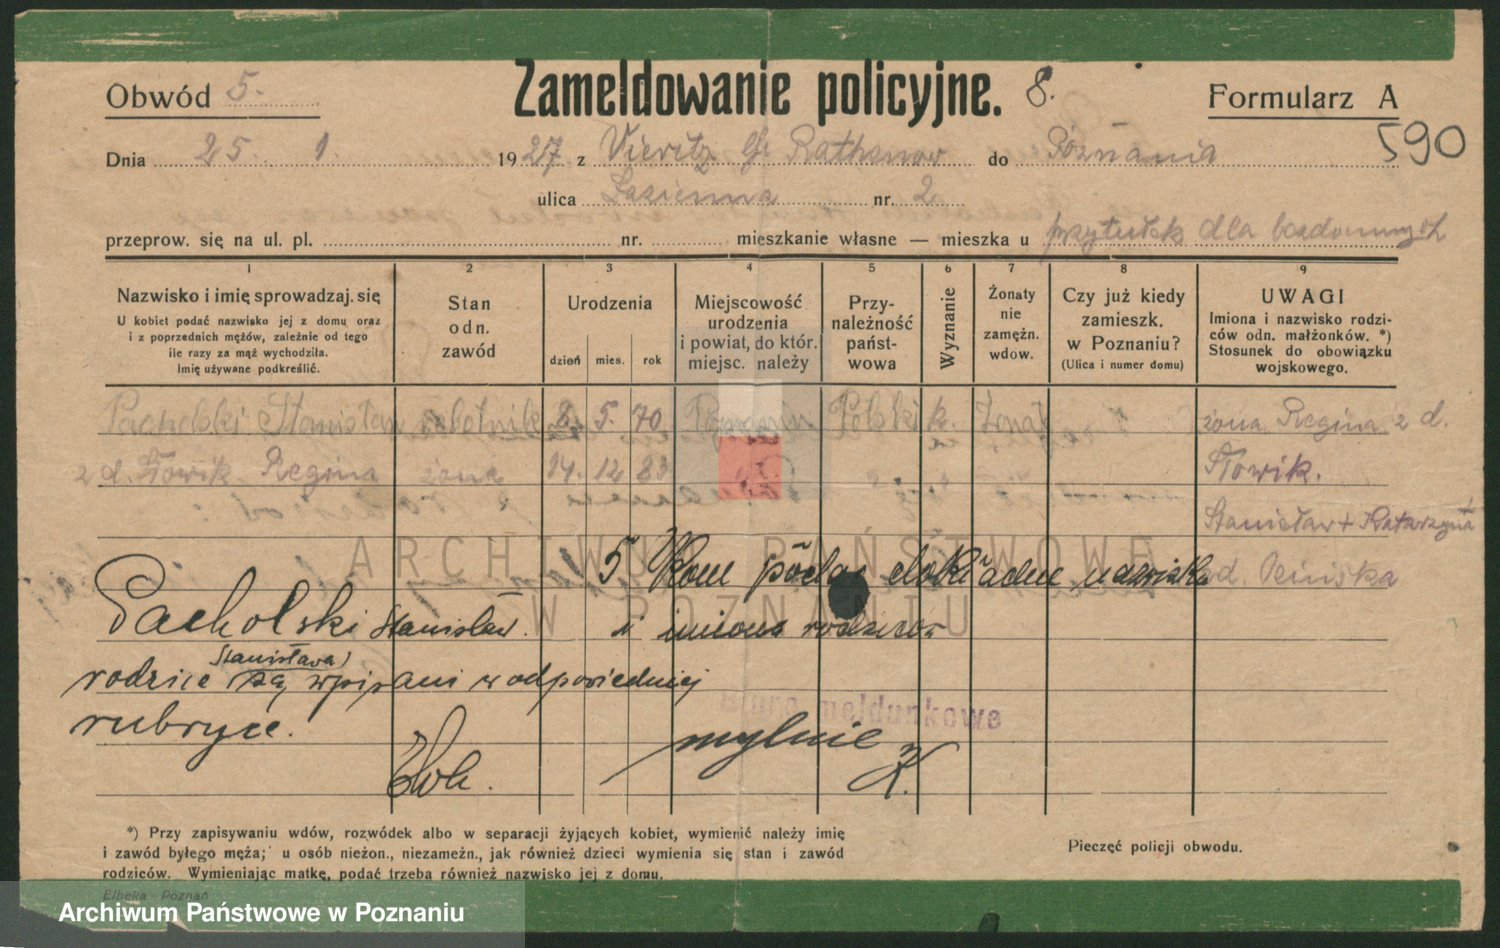 Zameldowanie policyjne. 8.
Obwód 5.
Formularz A
590
Dnia 25. 1. 1927 z Vieritz Rathenow do Poznania
ulica Łazienna nr. 2
przeprow. się na ul. pl. nr. mieszkanie własne — mieszka u przytułek dla bezdomnych
1 2 3 4 5 6 7 8 9
Nazwisko i imię sprowadzaj. się
U kobiet podać nazwisko jej z domu oraz
i z poprzednich mężów, zależnie od tego
ile razy za mąż wychodziła.
Imię używane podkreślić.
Stan
odn.
zawód
Urodzenia
dzień mies. rok
Miejscowość
urodzenia
i powiat, do któr.
miejsc. należy
Przy-
należność
państ-
wowa
Wyznanie
Żonaty
nie
zamężn.
wdow.
Czy już kiedy
zamieszk.
w Poznaniu?
(Ulica i numer domu)
UWAGI
Imiona i nazwisko rodzi-
ców odn. małżonków. *)
Stosunek do obowiązku
wojskowego.
Pacholski Stanisław robotnik 8. 5. 70 Polski k. żonaty żona Regina z d.
z d. Słowik Regina żona 14. 12 83 Słowik.
Stanisław + Katarzyna
5 Kom podać dokładne nazwisko d.
i imiona rodziców
Pacholski Stanisław.
(Stanisława)
rodzice są wpisani w odpowiedniej
rubryce.
Biuro meldunkowe
mylnie
K.
ARCHIWUM PAŃSTWOWE
W POZNANIU
*) Przy zapisywaniu wdów, rozwódek albo w separacji żyjących kobiet, wymienić należy imię
i zawód byłego męża; u osób nieżon., niezamężn., jak również dzieci wymienia się stan i zawód
rodziców. Wymieniając matkę, podać trzeba również nazwisko jej z domu.
Pieczęć policji obwodu.
Elbeka - Poznań
Archiwum Państwowe w Poznaniu